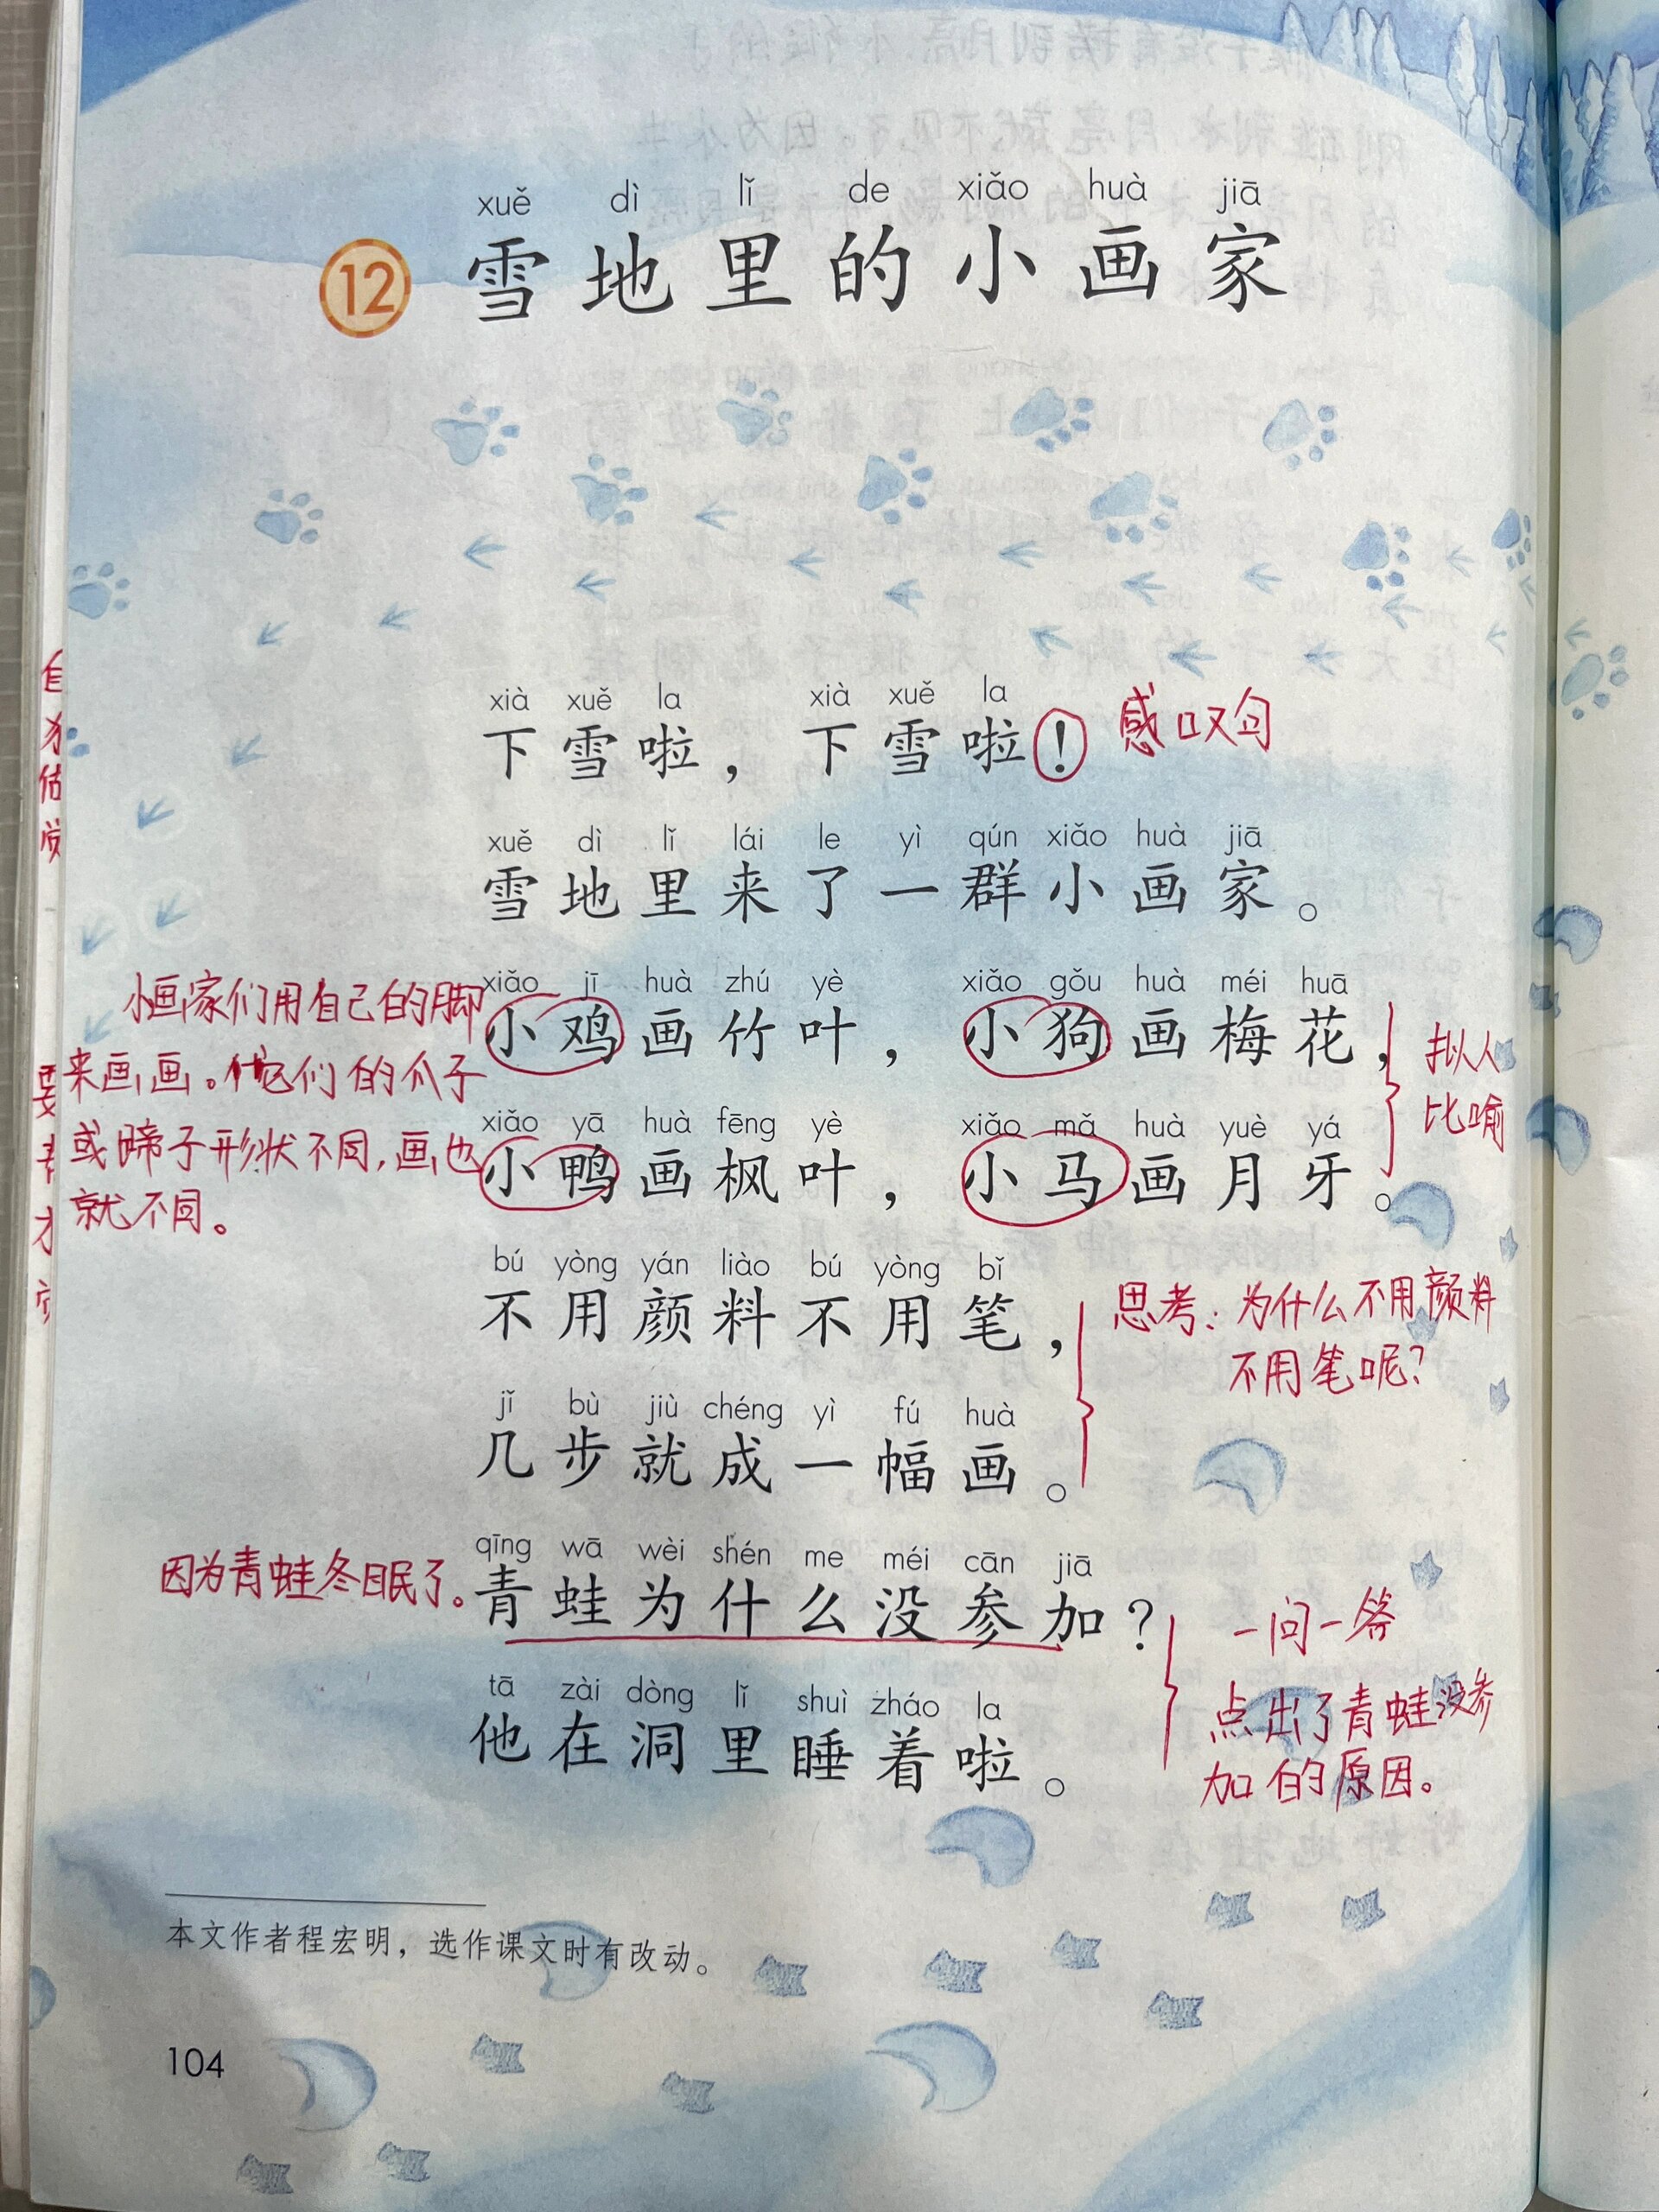 xuě dì lǐ de xiǎo huà jiā
12 雪地里的小画家
xià xuě la xià xuě la
下雪啦，下雪啦！ 感叹句
xuě dì lǐ lái le yì qún xiǎo huà jiā
雪地里来了一群小画家。
xiǎo jī huà zhú yè xiǎo gǒu huà méi huā
小鸡画竹叶，小狗画梅花，
xiǎo yā huà fēng yè xiǎo mǎ huà yuè yá
小鸭画枫叶，小马画月牙。
拟人
比喻
小画家们用自己的脚
来画画。他们的爪子
或蹄子形状不同,画也
就不同。
bú yòng yán liào bú yòng bǐ
不用颜料不用笔，
jǐ bù jiù chéng yì fú huà
几步就成一幅画。
思考：为什么不用颜料
不用笔呢？
qīng wā wèi shén me méi cān jiā
因为青蛙冬眠了。
青蛙为什么没参加？
tā zài dòng lǐ shuì zháo la
他在洞里睡着啦。
一问一答
点出了青蛙没参
加的原因。
本文作者程宏明，选作课文时有改动。
104